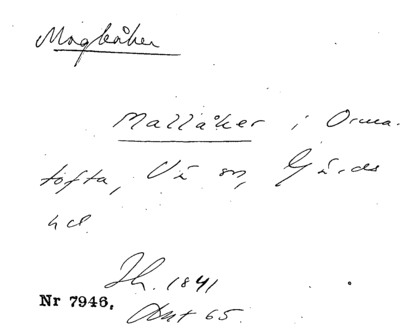 Magåker
Mallåker i Orma-
tofta, V i sn, Gärds
hd.
Jh. 1841
Nr 7946. Ant 65.